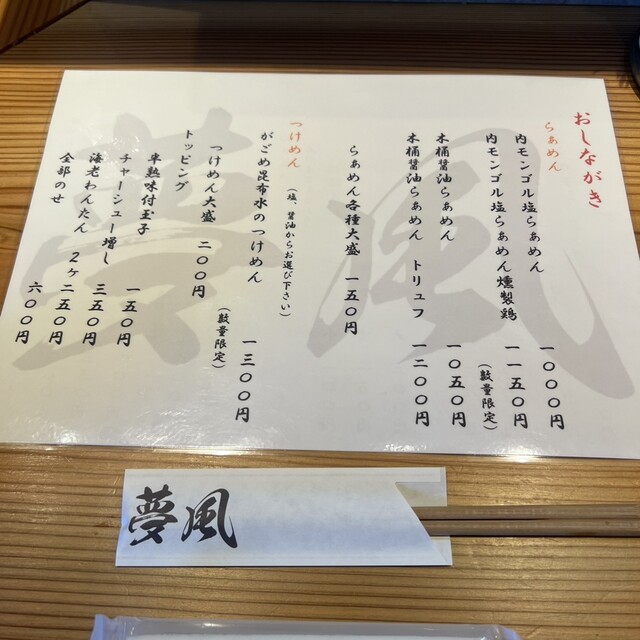 おしながき
らぁめん
内モンゴル塩らぁめん 一〇〇〇円
内モンゴル塩らぁめん燻製鶏 一一五〇円
(数量限定)
木桶醤油らぁめん 一〇五〇円
木桶醤油らぁめん トリュフ 一二〇〇円
らぁめん各種大盛 一五〇円
つけめん
(塩、醤油からお選び下さい)
がごめ昆布水のつけめん 一三〇〇円
(数量限定)
つけめん大盛 二〇〇円
トッピング
半熟味付玉子 一五〇円
チャーシュー増し 三五〇円
海老わんたん 2ヶ 二五〇円
全部のせ 六〇〇円
夢風
夢風